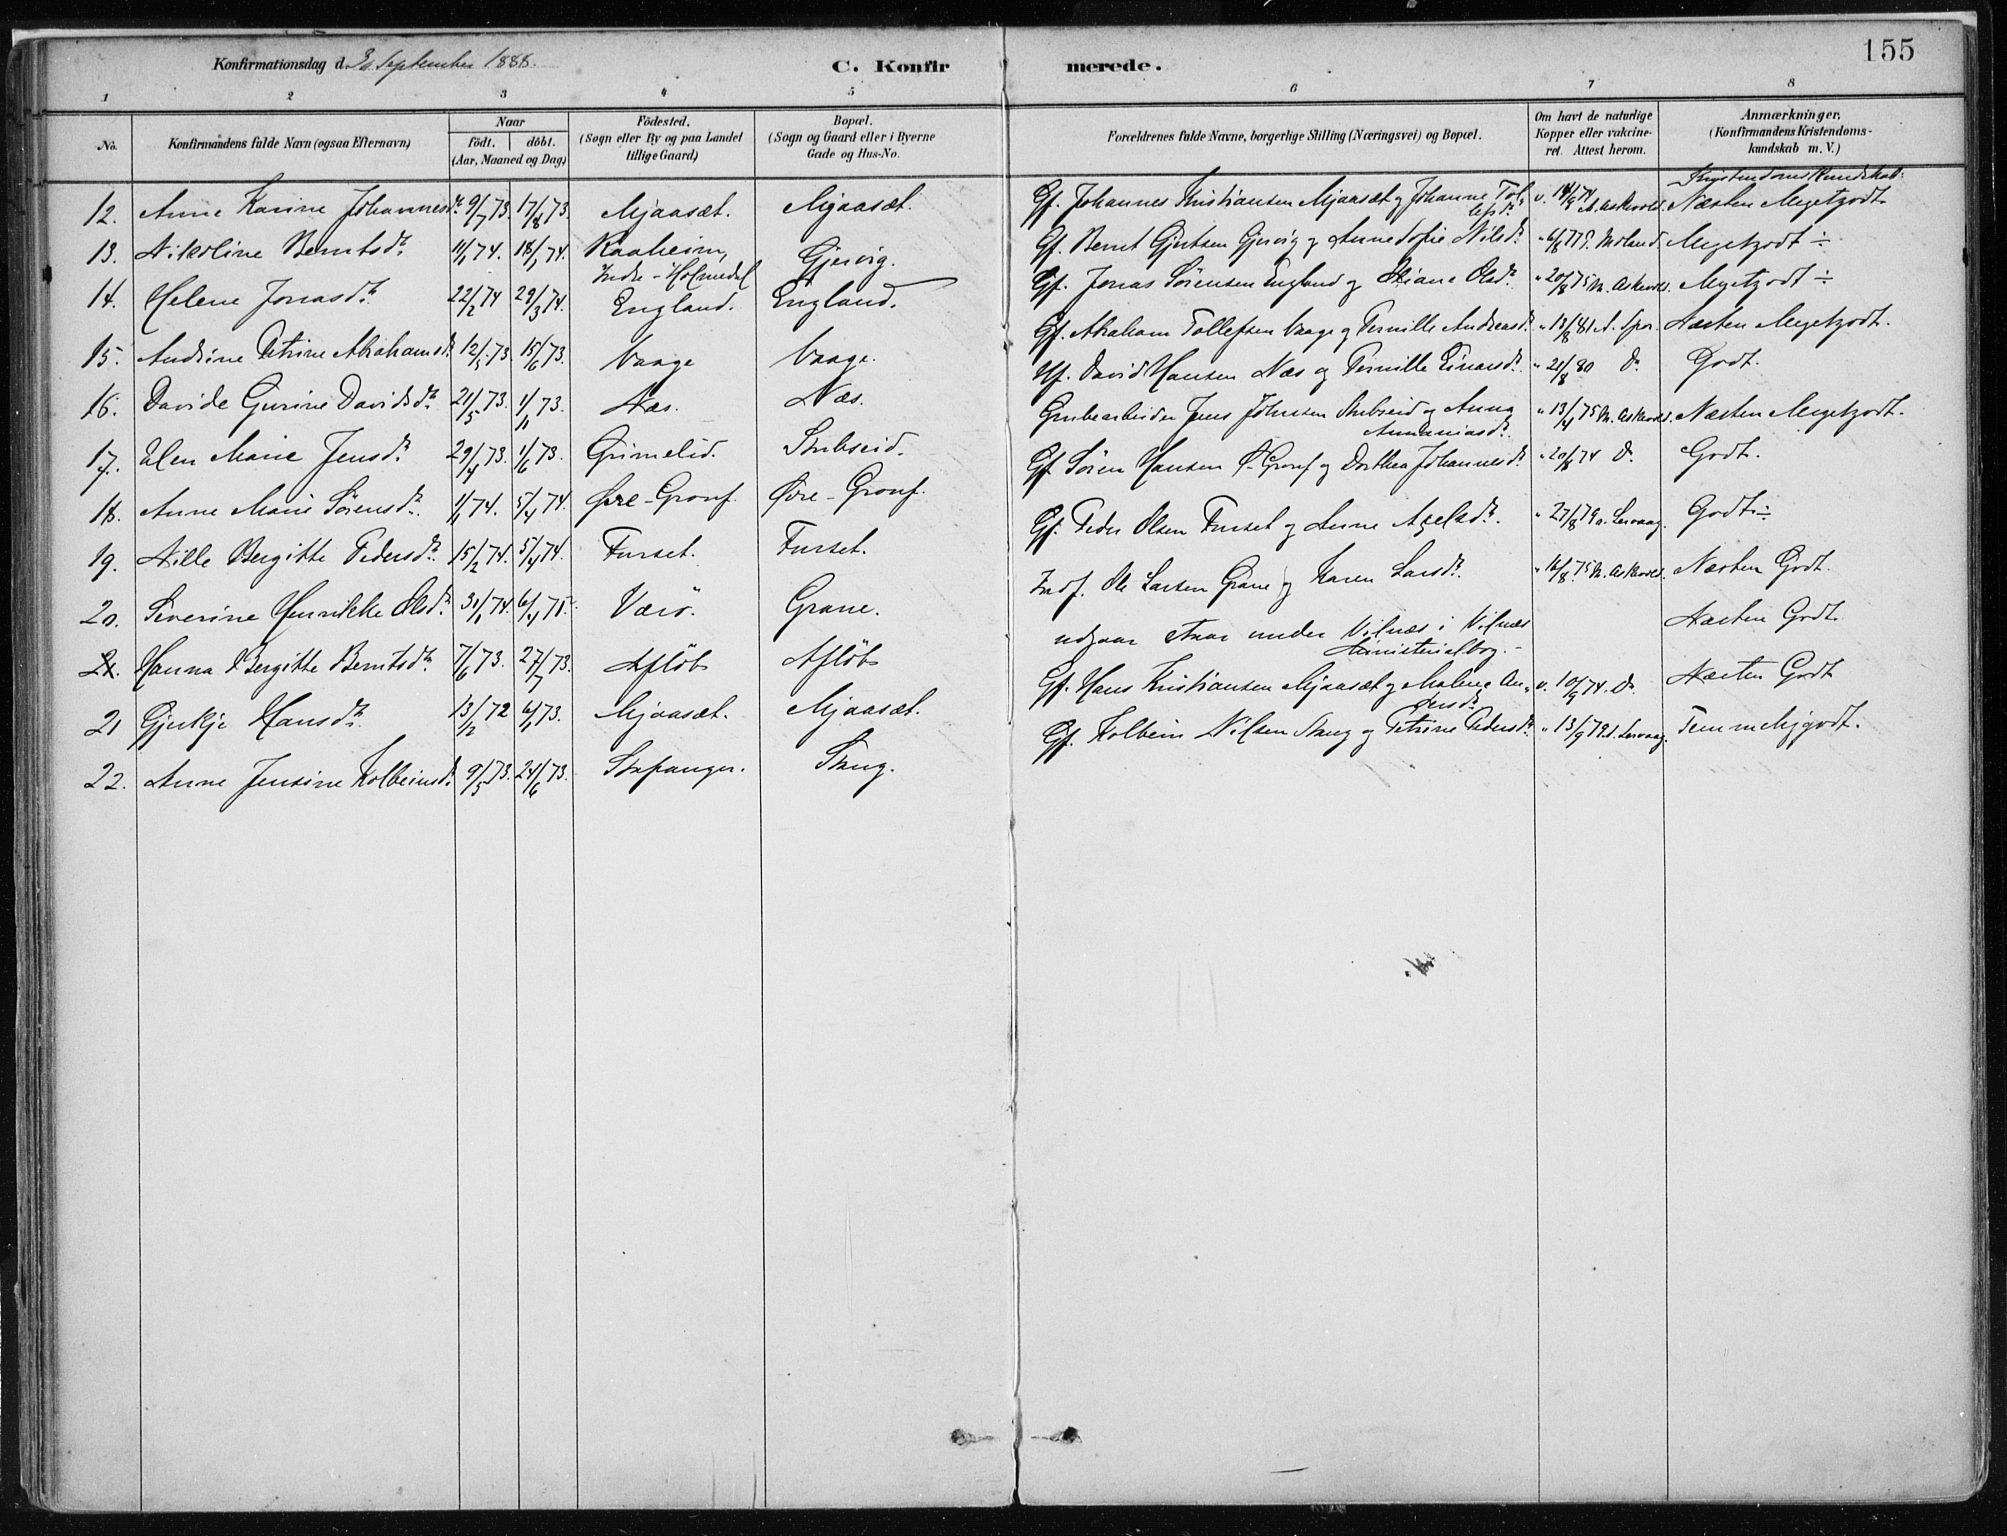 155
Konfirmationsdag d. 30 September 1888.
C. Konfirmerede.
1 2 3 4 5 6 7 8
No. Konfirmandens fulde Navn (ogsaa Efternavn) Naar födt. döbt. (Aar, Maaned og Dag) Födested. (Sogn eller By og paa Landet tillige Gaard) Bopæl. (Sogn og Gaard eller i Byerne Gade og Hus-No. Forældrenes fulde Navne, borgerlige Stilling (Næringsvei) og Bopæl. Om havt de naturlige Kopper eller vakcineret. Attest herom. Anmærkninger. (Konfirmandens Kristendomskundskab m. V.)
Kristendomskundskab:
12. Anne Karine Johannesdr. 9/7 73. 17/8 73. Mjaasæt. Mjaasæt. Gf. Johannes Kristiansen Mjaasæt og Johanne Tollefsdr. v. 14/9 74 M. Askevold. Næsten Megetgodt.
13. Nikoline Berntsdr. 11/1 74. 18/1 74. Raaheim, Indre-Holmedal Gjervig. Gf. Bernt Gjertsen Gjervig og Anne Sofie Nilsdr. " 6/8 77 Moland. Megetgodt ÷
14. Helene Jonasdr. 22/2 74 29/3 74. England. England. Gf. Jonas Sørensen England og Oldsdr. " 20/8 75 M. Askevold. Megetgodt ÷
15. Andrine Petrine Abrahamsdr. 12/5 73. 15/6 73. Vaage Vaage. Gf. Abraham Tollefsen Vaage og Pernille Andreasdr. " 13/8 81 Næsten Megetgodt.
16. Davide Gurine Davidsdr. 21/5 73. 1/11 73. Næs. Næs. Hf. David Hansen Næs og Pernille Einarsdr. " 21/8 80 Do. Godt.
17. Elen Marie Jensdr. 29/4 73. 1/6 73. Grimelid. Stubseid. Grubearbeider Jens Johnsen Stubseid og Anna Ananiasdr. " 13/4 75 M. Askevold. Næsten Megetgodt.
18. Anne Marie Sørensdr. 1/1 74. 5/4 74. Øvre-Grønf. Øvre-Grønf. Gf. Søren Hansen Ø-Grønf og Dorthea Johannesdr. " 20/8 74 Do. Godt.
19. Nille Bergitte Pedersdr. 15/2 74. 5/4 74. Furset. Furset. Gf. Peder Olsen Furset og Anne Axelsdr. " 27/8 79 Lervaag. Godt ÷
20. Severine Henrikke Olsdr. 30/1 74. 6/4 75. Værø. Grane. Indf. Ole Larsen Grane og Karen Larsdr. " 16/8 75 M. Askevold. Næsten Godt.
21. Hanna Bergitte Berntsdr. 7/6 73. 27/7 73. Afløb Afløb udgaar staar under Vilnæs i Vilnæs Ministerialbog. - Næsten Godt
21 Gjerkje Hansdr. 13/12 72 6/1 73. Mjaasæt. Mjaasæt. Gf. Hans Kristiansen Mjaasæt og Malene Andersdr. v. 10/9 74. Do. Næsten Godt
22. Anne Jensine Kolbeinsdr. 9/5 73. 24/6 73. Stapanger. Stang. Gf. Kolbein Nilsen Stang og Petrine Pedersdr. " 13/9 79 Lervaag. Temmeligodt.